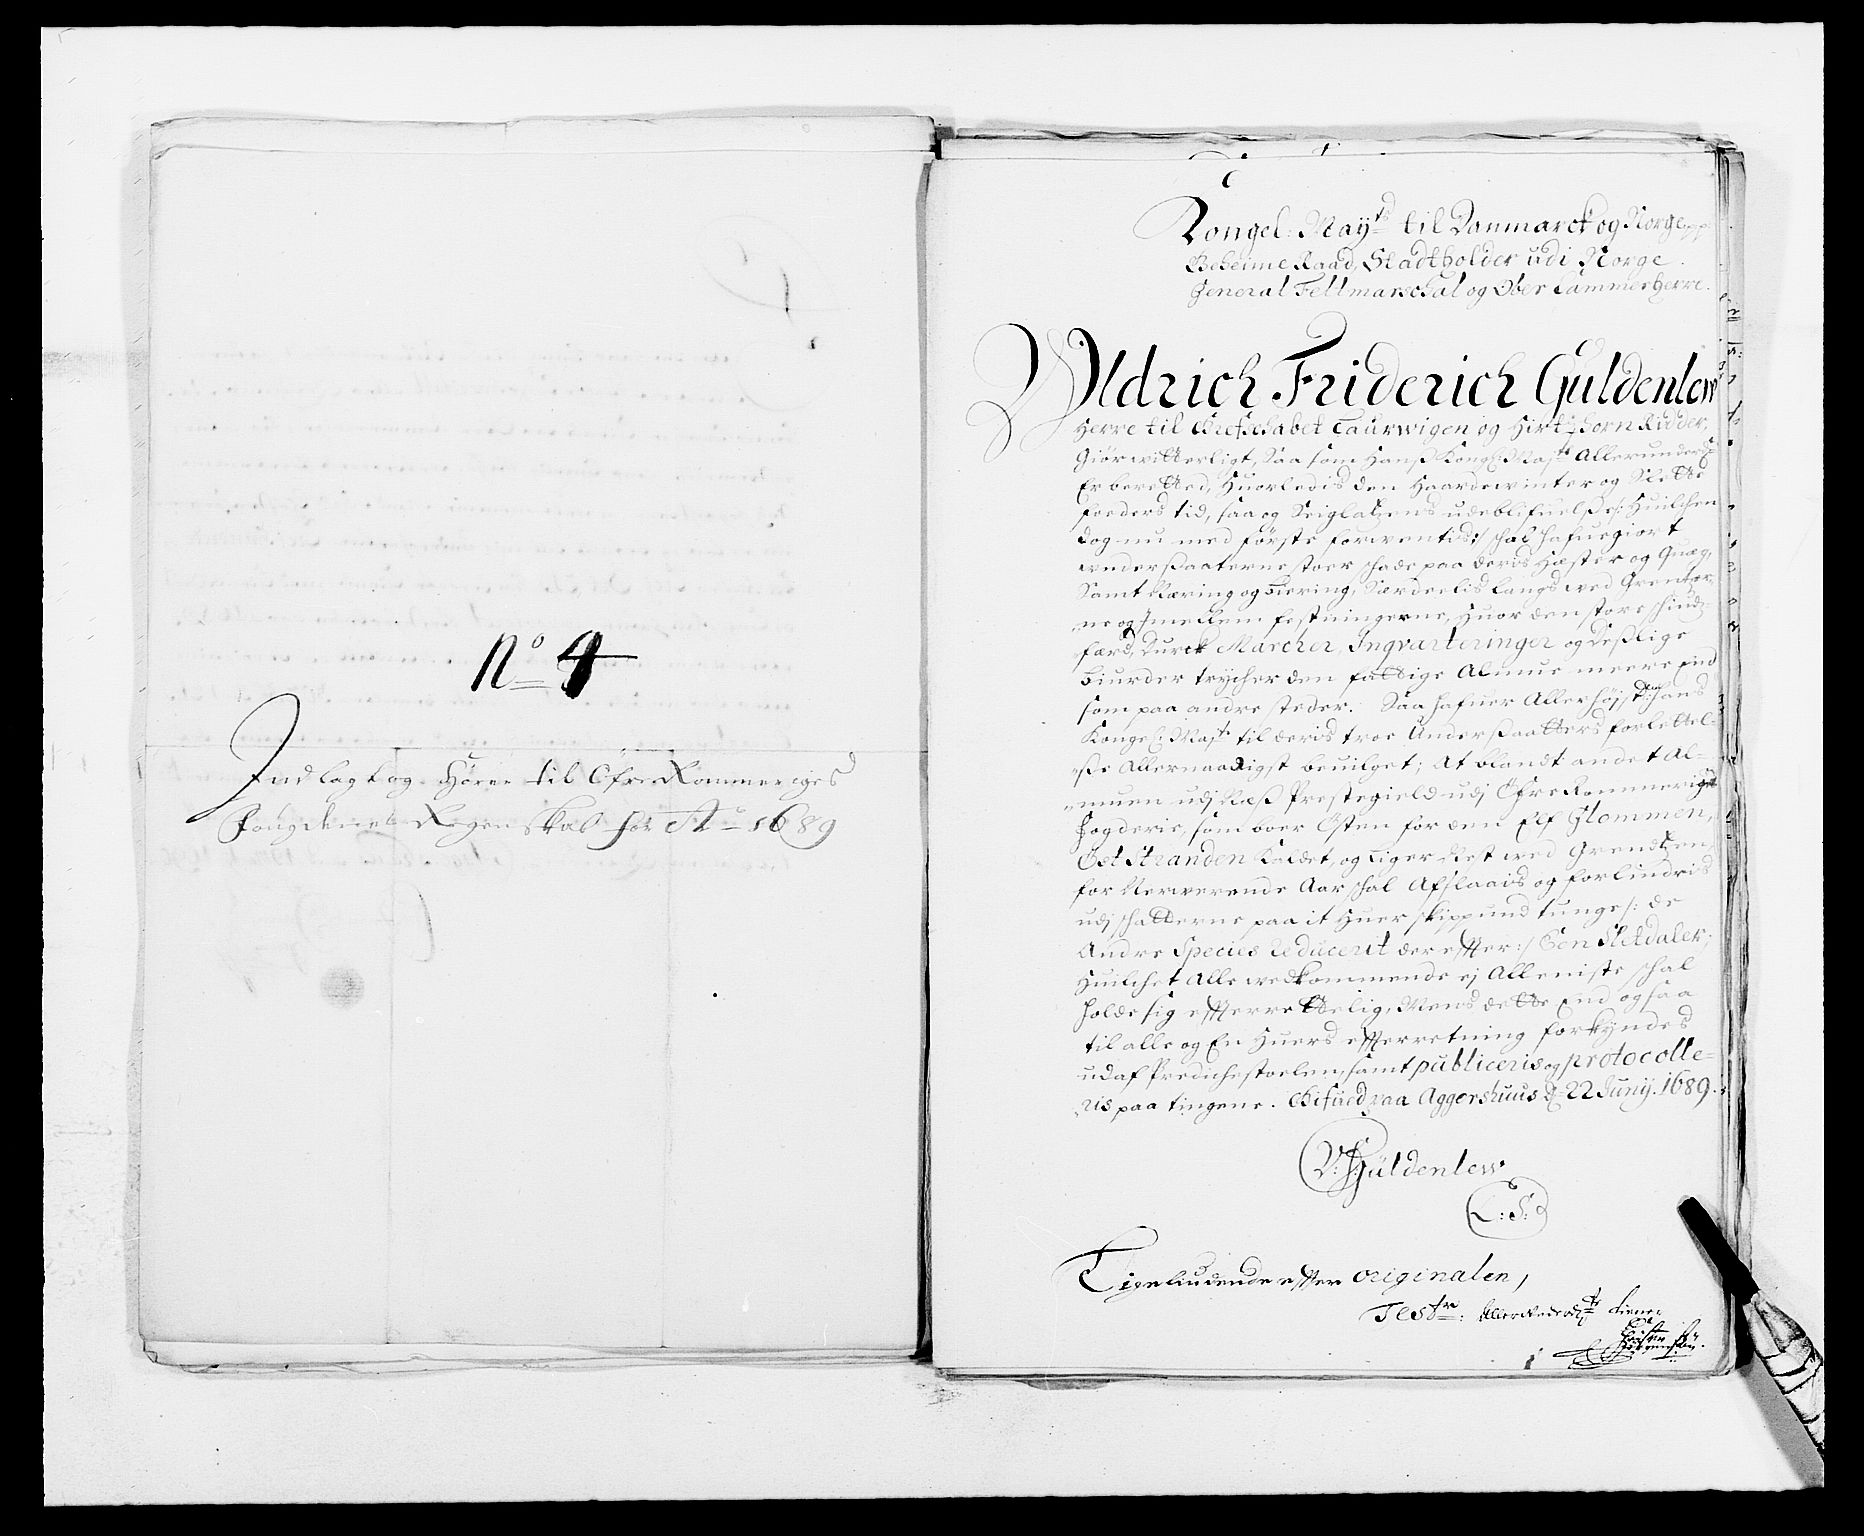 No 4
Indlagt og Hörer til Ofre Rommeriges
Fougderies Regenskab for Ao 1689
Kongel: Mayts til Danmarck og Norge pp:
Geheime Raad, Stadtholder udi Norge.
General Feltmarschal og Ober Cammerherre.
Vldrich Friderich Guldenlew
Herre til Grefschabet Laurwigen og Hirtzhorn Ridder,
Giör witterligt, Saa som Hanß Kongl: Mayts Allerunderdst
Er beretted, Huorledis den Haarde winter og Slette
foeders tid, saa og Seiglatzens udeblifuelße /: Huilchen
dog nu med förste forwentis :/ schal hafue giort
wnderßaaterne stoer schade paa deris Hæster og Quæg,
Samt Næring og Biering, Særdeelis langs wed Grentzer-
ne og jmellem festningerne, Huor den store schiuds-
færd, Durck Marcher, Ingvarteringer og deßlige
biurder trycher den fattige Almue meere End
som paa andre steder. Saa hafuer Allerhöjstbte Hans
Kongel: Mayts til deris troe Underßaatters forlettel-
ße Allernaadigst beuilget; At blandt andet Al-
muen udj Næß Prestegield udj Öfre Rommeriges
Fogderie, som boer Östen for den Elf Glommen,
Öst Stranden kaldet, og Liger Nest wed Grendtzen,
for Nerwerende Aar schal Afslaais og forlindris
udj schatterne paa it Huer skippund tunge /: de
Andre Species reducerit der effter :/ Een Sletdaler;
Huilchet Alle wedkommende ej Alleniste schal
holde sig efferrettelig, Mens dette End og saa
til alle og En Huers effterretning forkyndes
udaf Predichestoelen, samt publiceris og protocolle-
ris paa tingene. Gifued paa Aggershuus d: 22 Junij. 1689.
V: F: Güldenlew
(L: S:)
Ligeliudende effter originalen,
Testr: